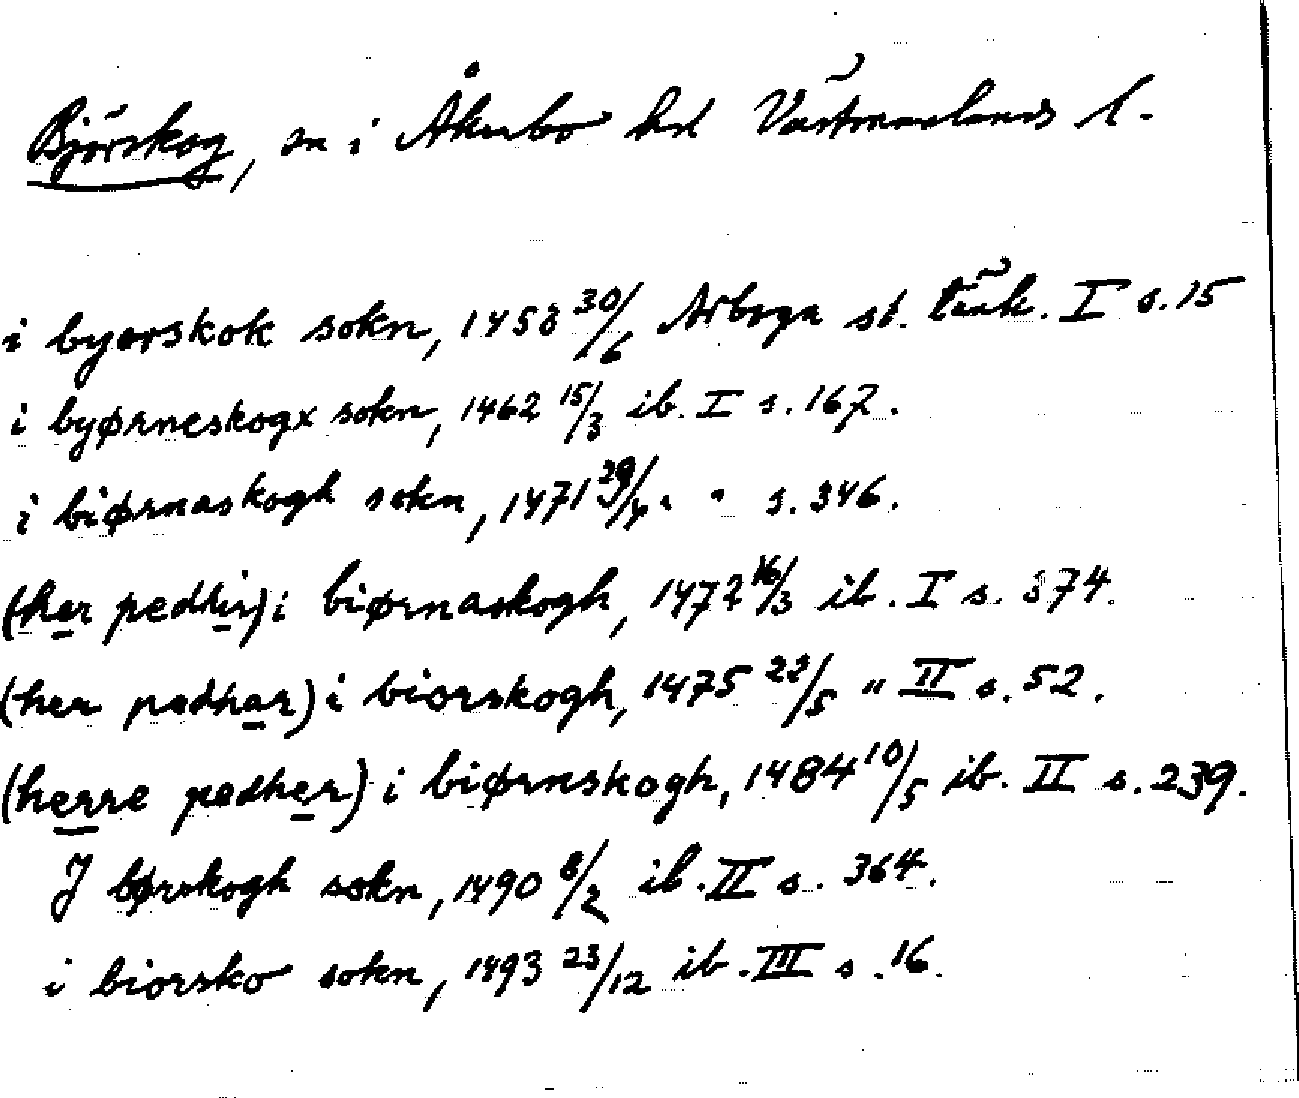 Björskog, sn i Åkerbo hd Västmanlands l.
i byorskok sokn, 1458 30/6 Arboga st. tänk. I s. 15
i byørneskogx sokn, 1462 15/3 ib. I s. 167.
i biørnaskogh sokn, 1471 29/4 " " s. 346.
(her pedhir) i biørnaskogh, 1472 16/3 ib. I s. 374.
(her pedhar) i biorskogh, 1475 22/5 " II s. 52.
(herre pedher) i biørnskogh, 1484 10/5 ib. II s. 239.
J børskogh sokn, 1490 8/2 ib. II s. 364.
i biorsko sokn, 1493 23/12 ib. III s. 16.